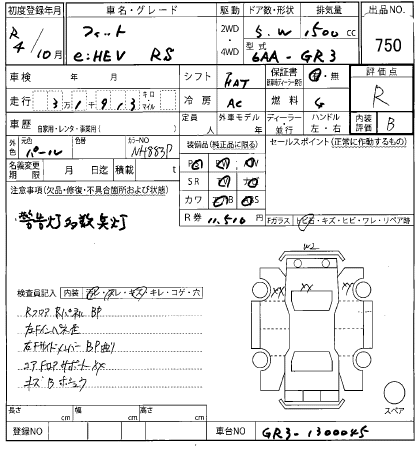 初度登録年月 車名・グレード 駆動 ドア数・形状 排気量 出品NO.
R 4 / 10月 フィット e:HEV RS 2WD ・ 4WD S.W 1500 cc 750
型式 6AA-GR3
車検 年 月 シフト FAT 保証書 有・無 評価点 R
走行 3万1913 キロ マイル 冷房 AC 燃料 G
車歴 自家用・レンタ・事業用( ) 定員 人 外車モデル 年 ディーラー・並行 ハンドル 左・右 内装評価 B
外色 元色 パール 色替 カラーNO NH883P 装備品(純正品に限る) セールスポイント(正常に作動するもの)
名義変更期限 月 日迄 積載 t
SR ナビ
注意事項(欠品・修復・不具合箇所および状態) カワ AB BS
R券 11,510円 Fガラス トビ石・キズ・ヒビ・ワレ・リペア跡
警告灯多数点灯
W2
XX XX
検査員記入 内装 コゲ・穴 キレ
Rフロア Rパネル BP
左Fインパネ歪
左Fサイドメンバー BP曲り
コアサポート XX
キズB
スペア
長さ cm 幅 cm 高さ cm
登録NO 車台NO GR3-1300045